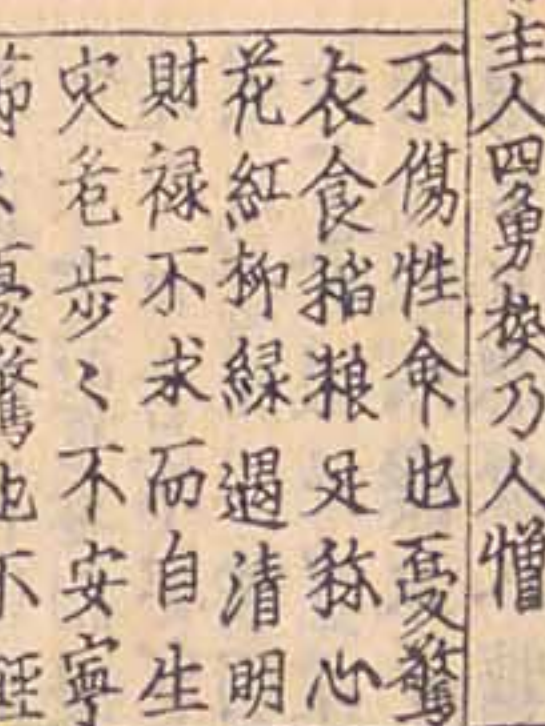 主人四勇換乃人憎
不傷性命也憂驚
衣食稻粮足称心
花紅柳緑遇清明
財禄不求而自生
灾危步〻不安寧
憂驚也不